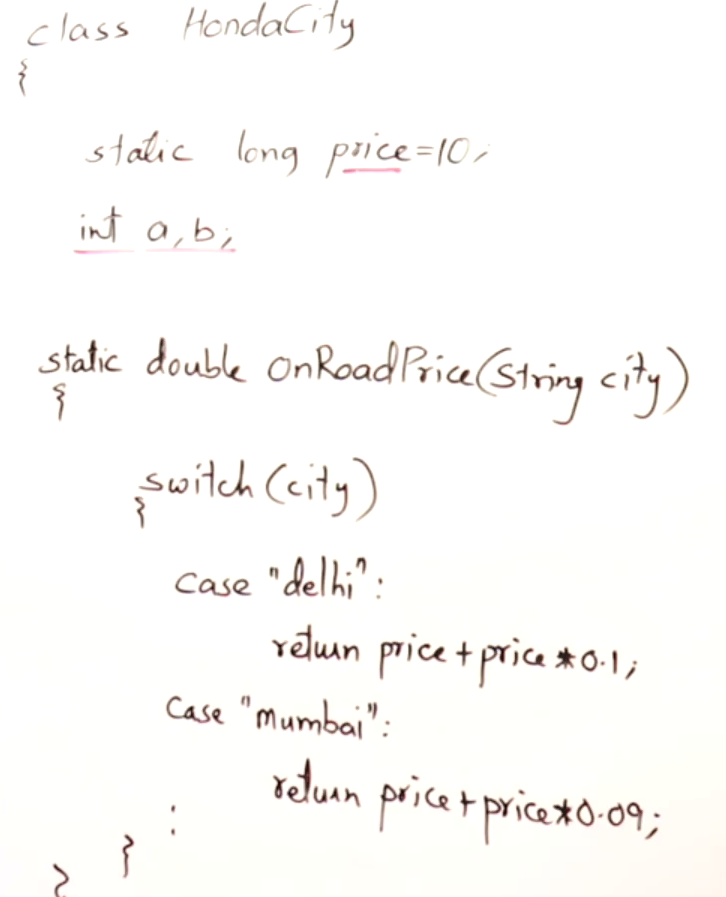 class HondaCity
{
static long price=10;
int a,b;
static double onRoadPrice(String city)
{
switch(city)
{
case "delhi":
return price+price*0.1;
Case "mumbai":
return price+price*0.09;
:
}
}